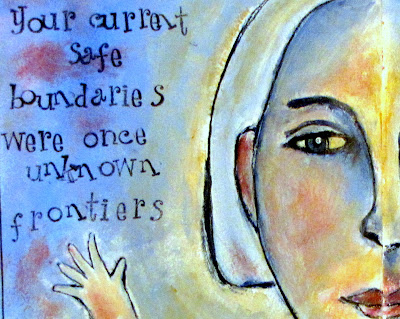 Your current
safe
boundaries
were once
unknown
frontiers